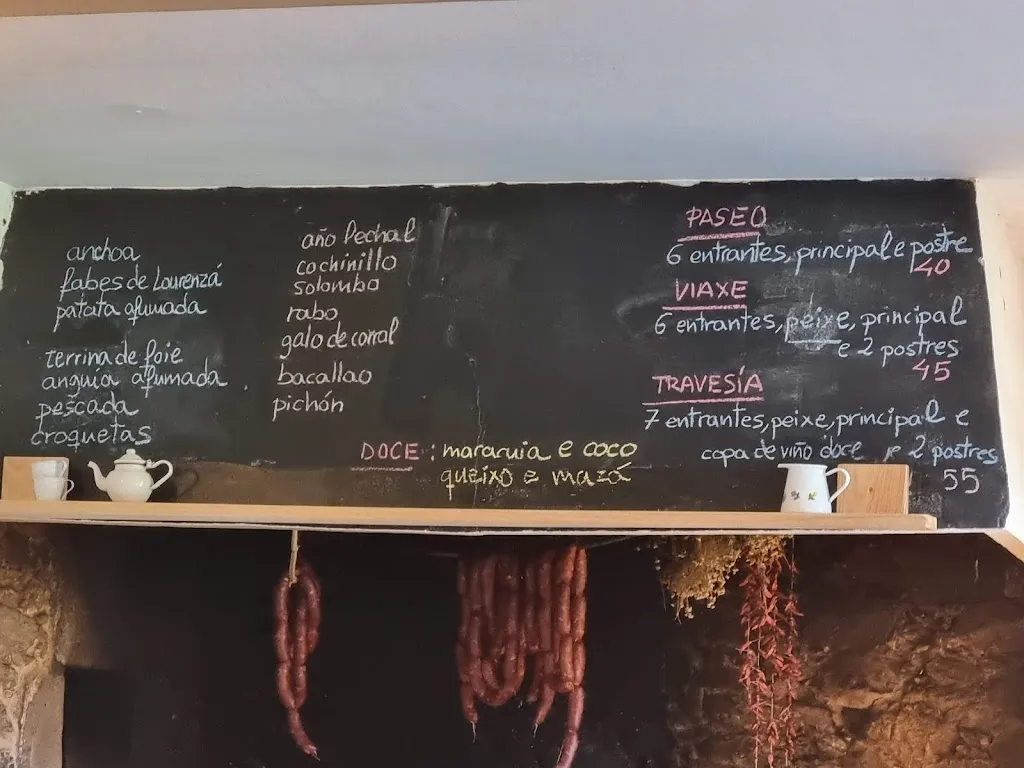 anchoa
fabes de Lourenzá
patata afumada
terrina de foie
anguía afumada
pescada
croquetas
año lechal
cochinillo
solombo
rabo
galo de corral
bacallao
pichón
DOCE: maracuia e coco
queixo e mazá
PASEO
6 entrantes, principal e postre
40
VIAXE
6 entrantes, peixe, principal
e 2 postres
45
TRAVESÍA
7 entrantes, peixe, principal e
copa de viño doce e 2 postres
55